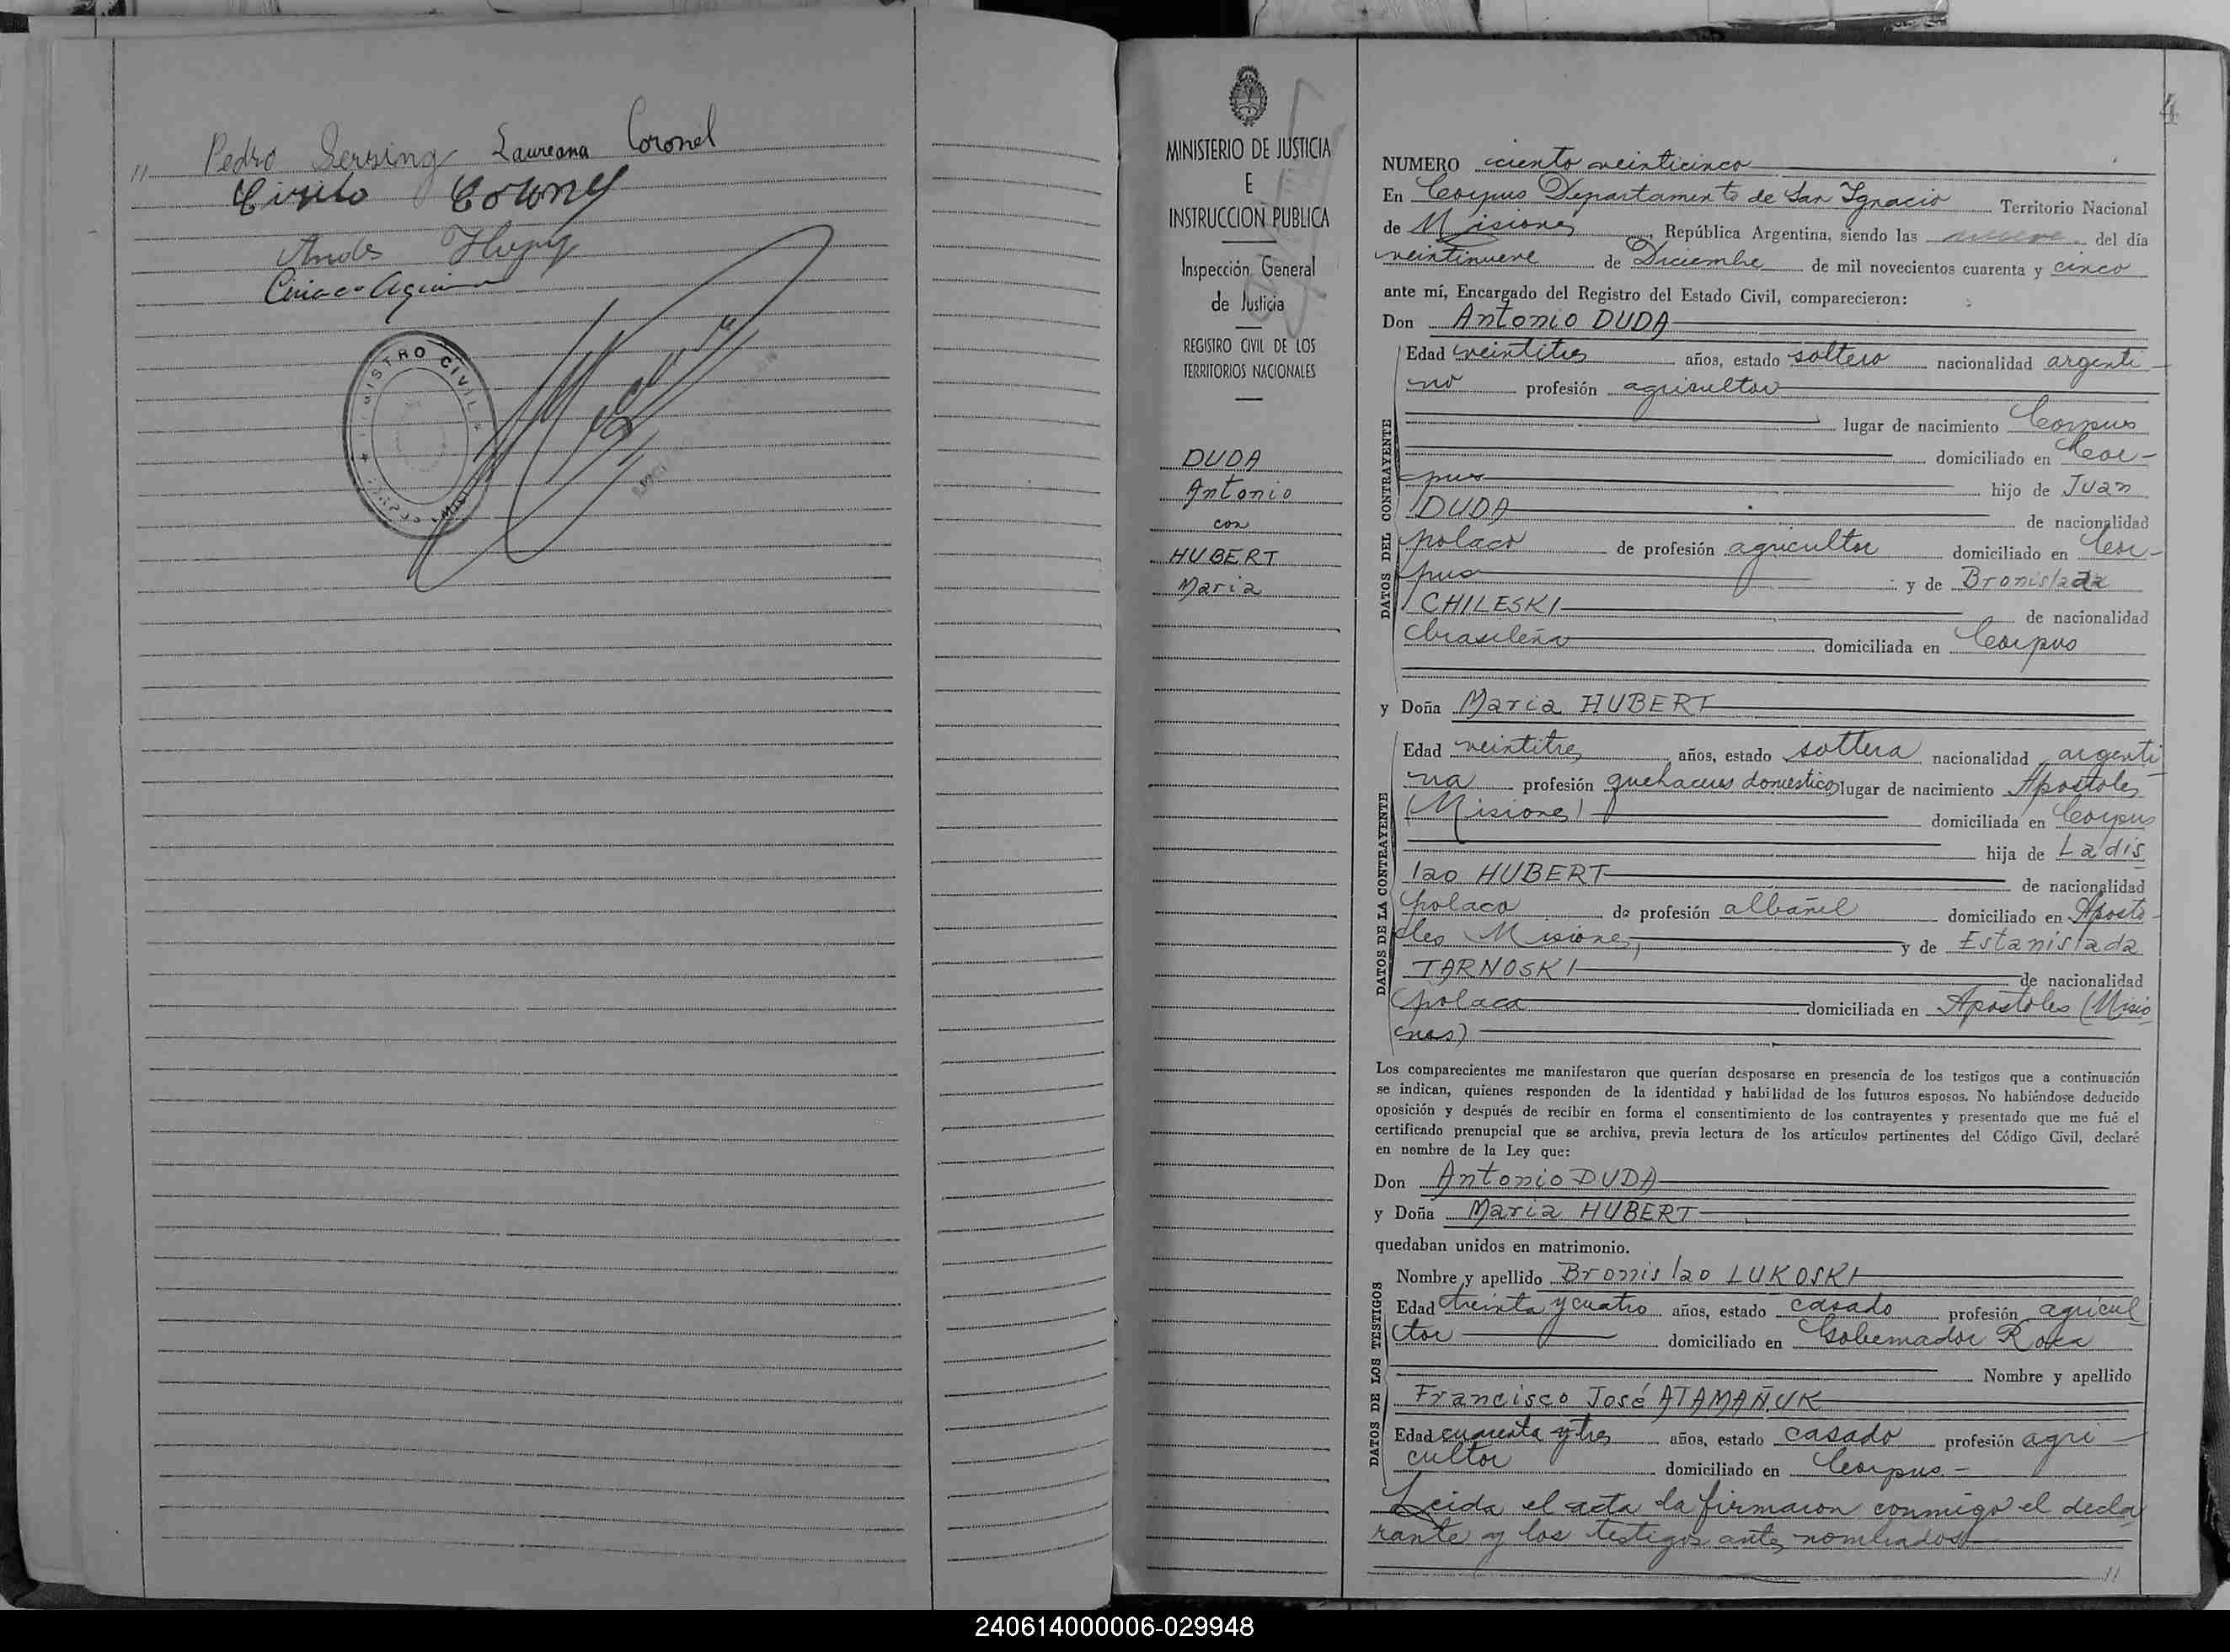 " Pedro Sersing Laureana Coronel
Cirilo Coronel
Andes
Ciriaco
REGISTRO CIVIL
MINISTERIO DE JUSTICIA
E
INSTRUCCION PUBLICA
Inspección General
de Justicia
REGISTRO CIVIL DE LOS
TERRITORIOS NACIONALES
DUDA
Antonio
con
HUBERT
Maria
4
NUMERO ciento veinticinco
En Corpus Departamento de San Ignacio Territorio Nacional
de Misiones, República Argentina, siendo las nueve del día
veintinueve de Diciembre de mil novecientos cuarenta y cinco
ante mí, Encargado del Registro del Estado Civil, comparecieron:
Don Antonio DUDA
DATOS DEL CONTRAYENTE
Edad veintitres años, estado soltero nacionalidad argenti-
no profesión agricultor
lugar de nacimiento Corpus
domiciliado en Cor-
pus hijo de Juan
DUDA de nacionalidad
polaco de profesión agricultor domiciliado en Cor-
pus y de Bronislada
CHILESKI de nacionalidad
brasileña domiciliada en Corpus
y Doña Maria HUBERT
DATOS DE LA CONTRAYENTE
Edad veintitres años, estado soltera nacionalidad argenti-
na profesión quehaceres domesticos lugar de nacimiento Apostoles
(Misiones) domiciliada en Corpus
hija de Ladis
lao HUBERT de nacionalidad
polaca de profesión albañil domiciliado en Aposto-
les Misiones, y de Estanislada
TARNOSKI de nacionalidad
polaca domiciliada en Apostoles (Misio
nes)
Los comparecientes me manifestaron que querían desposarse en presencia de los testigos que a continuación
se indican, quienes responden de la identidad y habilidad de los futuros esposos. No habiéndose deducido
oposición y después de recibir en forma el consentimiento de los contrayentes y presentado que me fué el
certificado prenupcial que se archiva, previa lectura de los artículos pertinentes del Código Civil, declaré
en nombre de la Ley que:
Don Antonio DUDA
y Doña Maria HUBERT
quedaban unidos en matrimonio.
DATOS DE LOS TESTIGOS
Nombre y apellido Bronislao LUKOSKI
Edad treinta y cuatro años, estado casado profesión agricul
tor domiciliado en Gobernador Roca
Nombre y apellido
Francisco José ATAMAÑUK
Edad cuarenta y tres años, estado casado profesión agri-
cultor domiciliado en Corpus-
Leida el acta la firmaron conmigo el decla
rante y los testigos antes nombrados
"
240614000006-029948